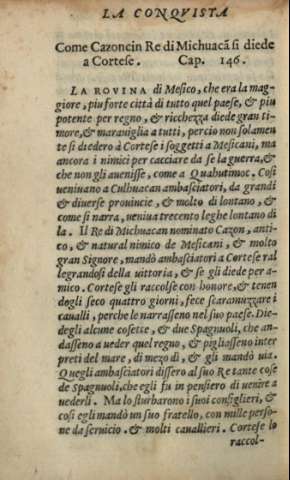 LA CONQVISTA
Come Cazoncin Re di Michuacã si diede
a Cortese. Cap. 146.
LA ROVINA di Mesico, che era la mag-
giore, piu forte città di tutto quel paese, & piu
potente per regno, & ricchezza diede gran ti-
more, & marauiglia a tutti, percio non solamen
te si diedero à Cortese i soggetti a Mesicani, ma
ancora i nimici per cacciare da se la guerra, &
che non gli auenisse, come a Quahutimoc. Cosi
ueniuano a Culhuacan ambasciatori, da grandi
& diuerse prouincie, & molto di lontano, &
come si narra, ueniua trecento leghe lontano di
la. Il Re di Michuacan nominato Cazon, anti-
co, & natural nimico de Mesicani, & molto
gran Signore, mandò ambasciatori a Cortese ral
legrandosi della uittoria, & se gli diede per a-
mico. Cortese gli raccolse con honore, & tenen
dogli seco quattro giorni, fece scaramuzzare i
caualli, perche le narrasseno nel suo paese. Die-
degli alcune cosette, & due Spagnuoli, che an-
dasseno a ueder quel regno, & pigliasseno inter
preti del mare, di mezo dì, & gli mandò uia.
Quegli ambasciatori dissero al suo Re tante cose
de Spagnuoli, che egli fu in pensiero di uenire a
uederli. Ma lo sturbarono i suoi consiglieri, &
cosi egli mandò un suo fratello, con mille perso-
ne da seruicio, & molti cauallieri. Cortese lo
raccol-